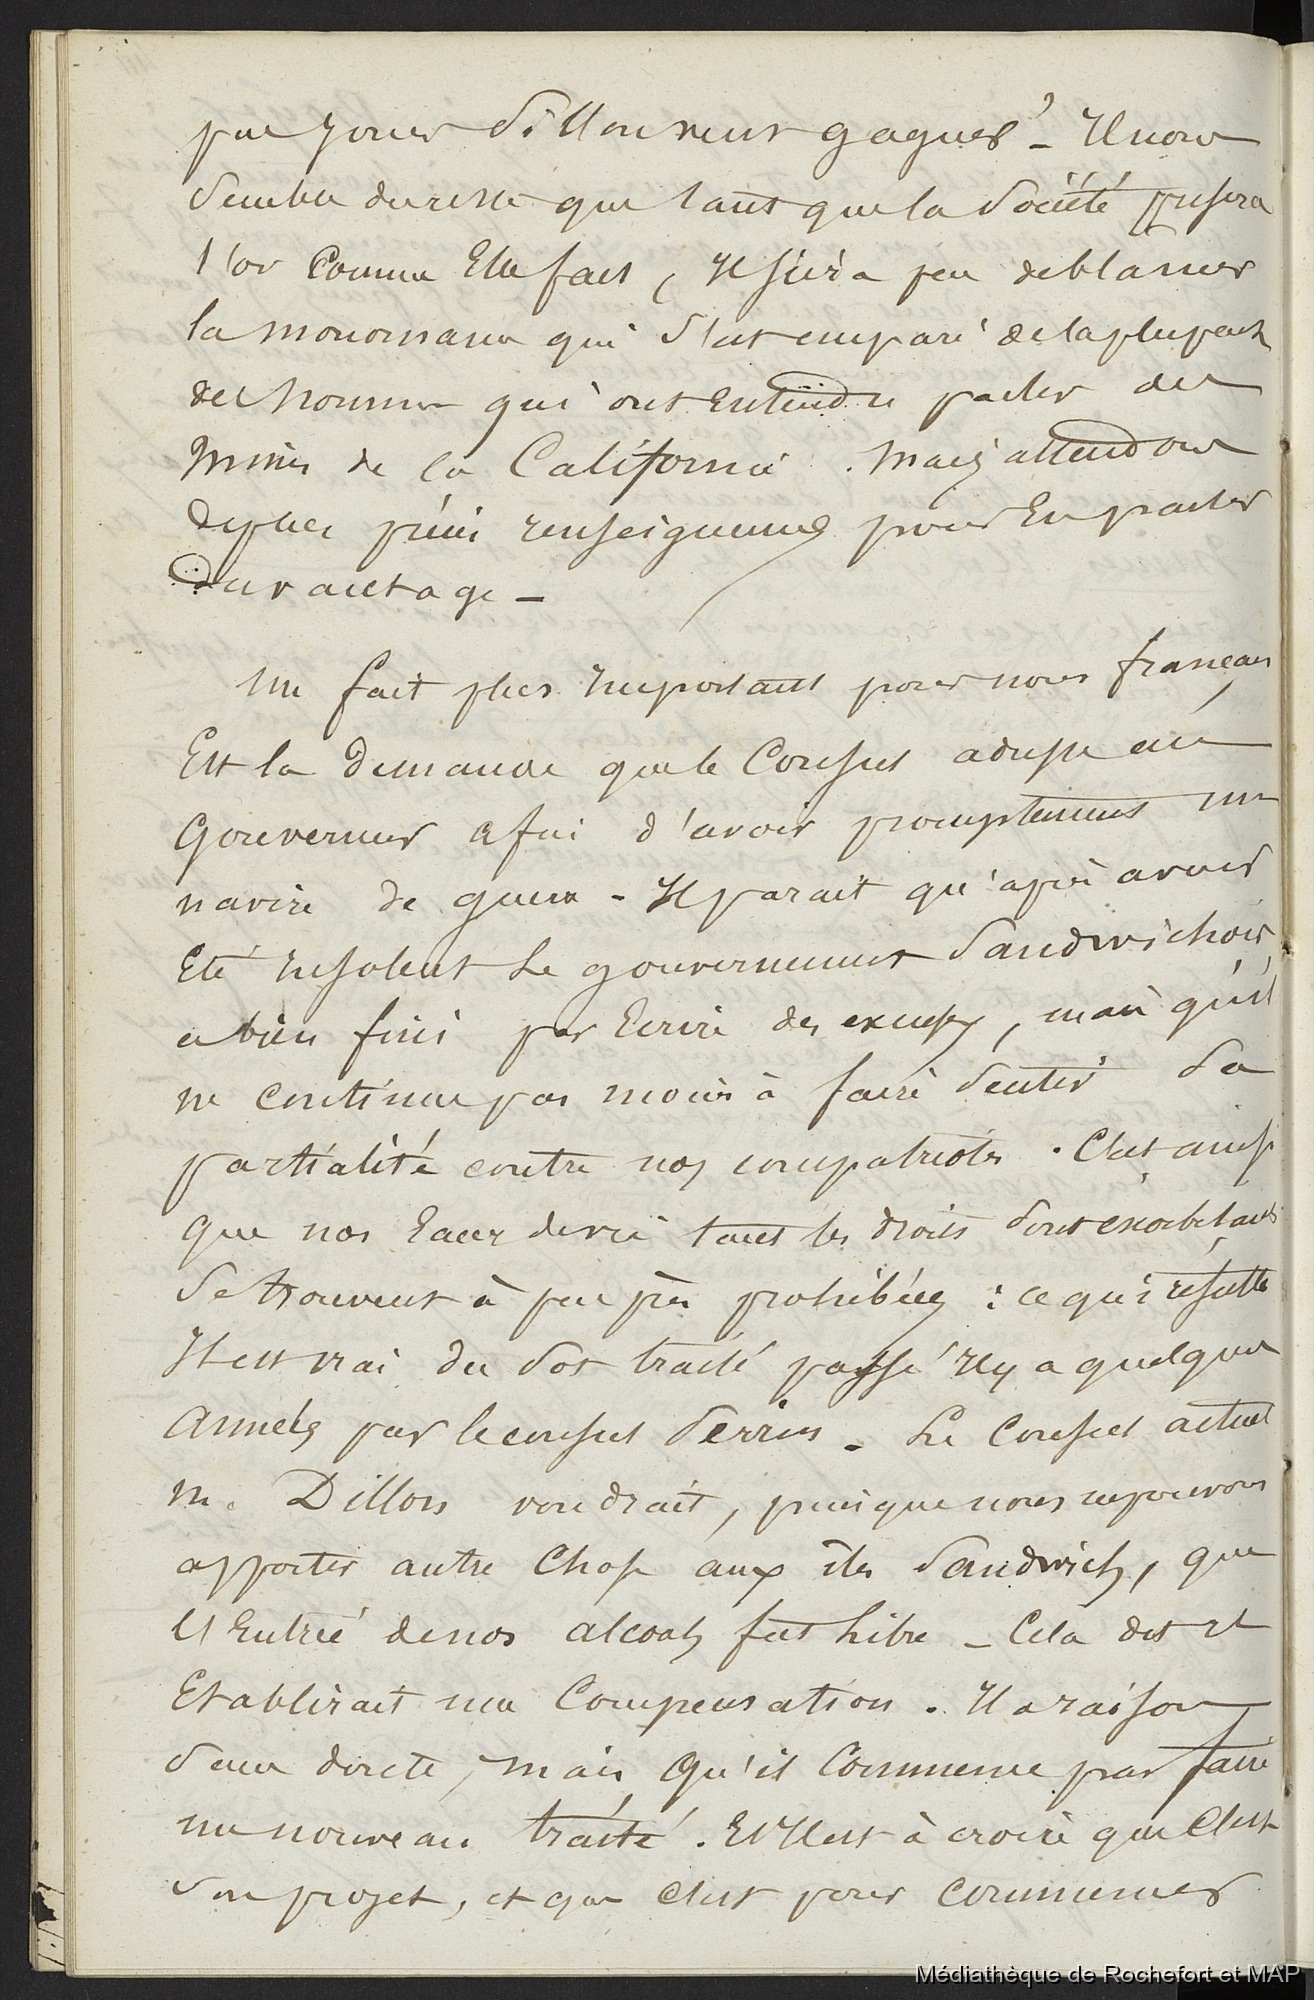 par jour s'ils en veut gagner - Il nous
semble du reste que tant que la Société prisera
l'or comme Elle fait, Il siéra peu de blamer
la monomanie qui s'est emparé de la plupart
des hommes qui ont Entendu parler des
Mines de la Californie. Mais attendons
de plus précis renseignemens pour En parler
davantage -
Un fait plus Important pour nous français
Est la demande que le Consul adresse au
Gouverneur afin d'avoir promptement un
navire de guerre - Il parait qu'après avoir
Eté Insolent Le gouvernement Sandwichois
a bien fini par Ecrire des excuses, mais qu'il
ne continue pas moins à faire sentir sa
partialité contre nos compatriotes. C'est ainsi
que nos Eaux de vie tant les droits sont exorbitants
se trouvent à peu près prohibées : ce qui résulte
Il est vrai du sot traité passé Il y a quelques
Années par le consul Perrin - Le Consul actuel
M. Dillon voudrait, puisque nous ne pouvons
apporter autre Chose aux îles Sandwich, que
l'Entrée de nos alcools fut Libre - Cela dit Il
Etablirait une Compensation. Il a raison
sans doute, mais qu'il Commence par faire
un nouveau traité. Et Il est à croire que C'est
son projet, et que c'est pour commencer
Médiathèque de Rochefort et MAP